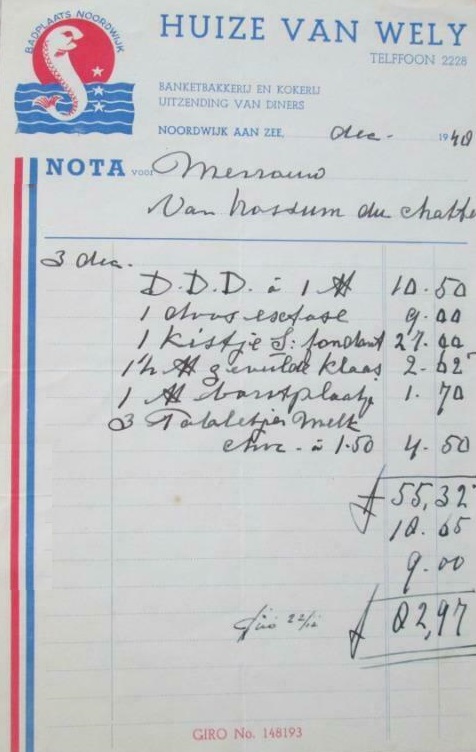 BADPLAATS NOORDWIJK
HUIZE VAN WELY
TELEFOON 2228
BANKETBAKKERIJ EN KOKERIJ
UITZENDING VAN DINERS
NOORDWIJK AAN ZEE, dec. 1948
NOTA voor Mevrouw
Van Rossum du Chatte
3 dec.
D.D.D. à 1 ℔ 10.50
1 doos 9.00
1 kistje S. fondant 27.00
1½ ℔ gevulde klaas 2.62⁵
1 ℔ borstplaatje 1.70
3 Tabletjes Melk
choc. à 1.50 4.50
ƒ 55,32⁵
18.65
9.00
giro 22/12 ƒ 82,97
GIRO No. 148193